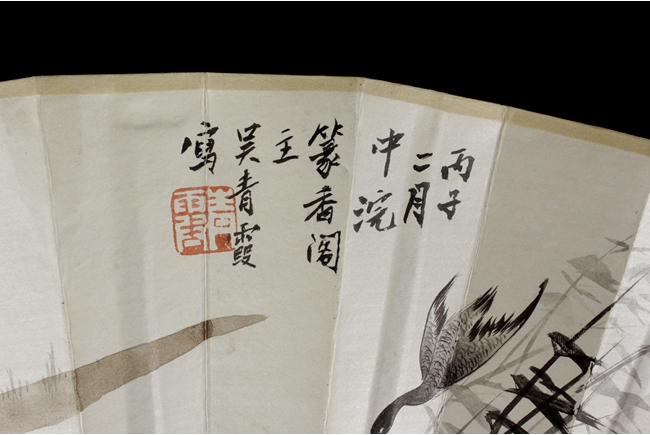 丙子
二月
中浣
篆香阁
主
吴青霞
寫
青霞